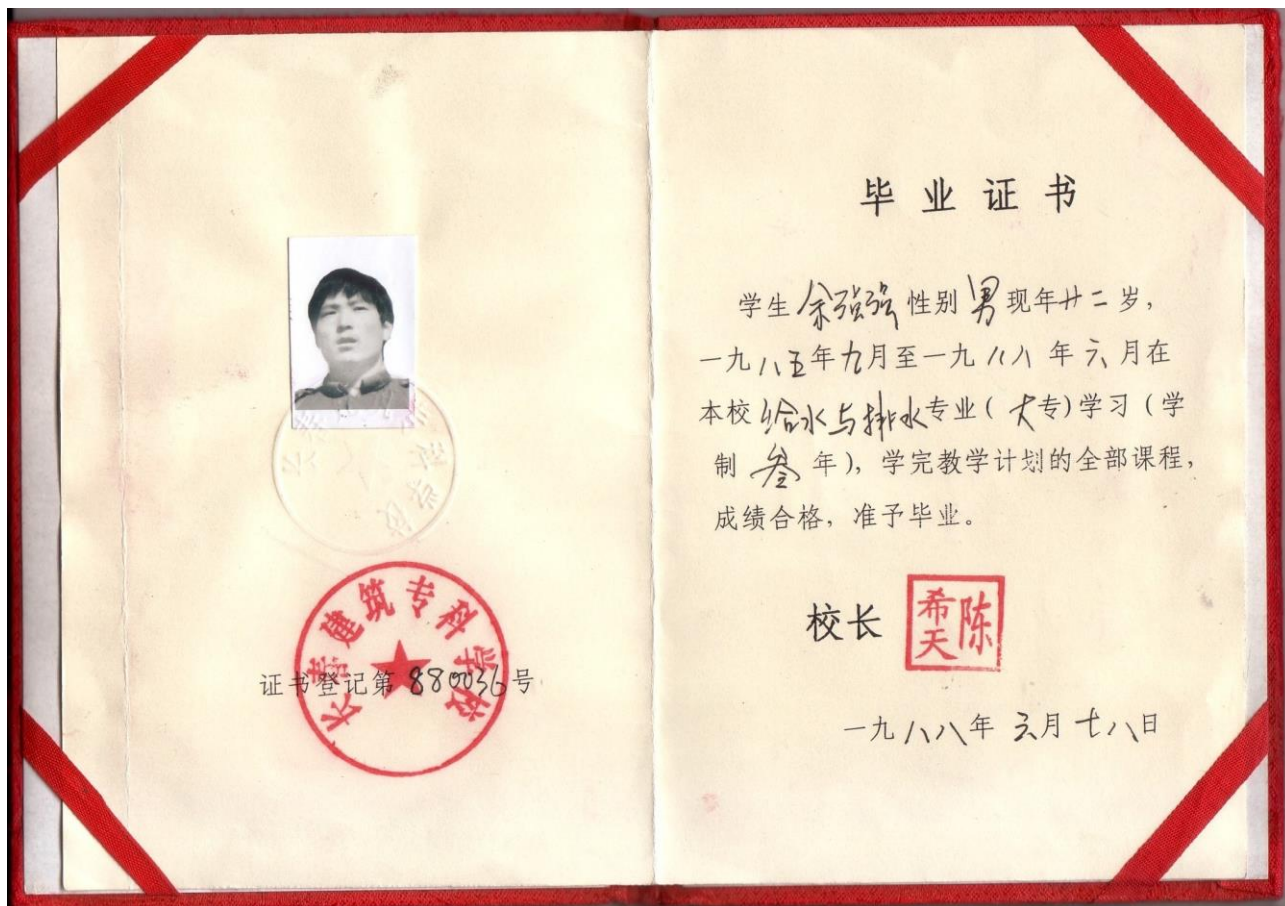 长春建筑专科学校
证书登记第 880036 号
毕业证书
学生 余强强 性别 男 现年廿二岁,
一九八五年九月至一九八八年六月在
本校 给水与排水专业(大专)学习(学
制 叁 年),学完教学计划的全部课程,
成绩合格,准予毕业。
校长 陈希天
一九八八年 六月 十八日